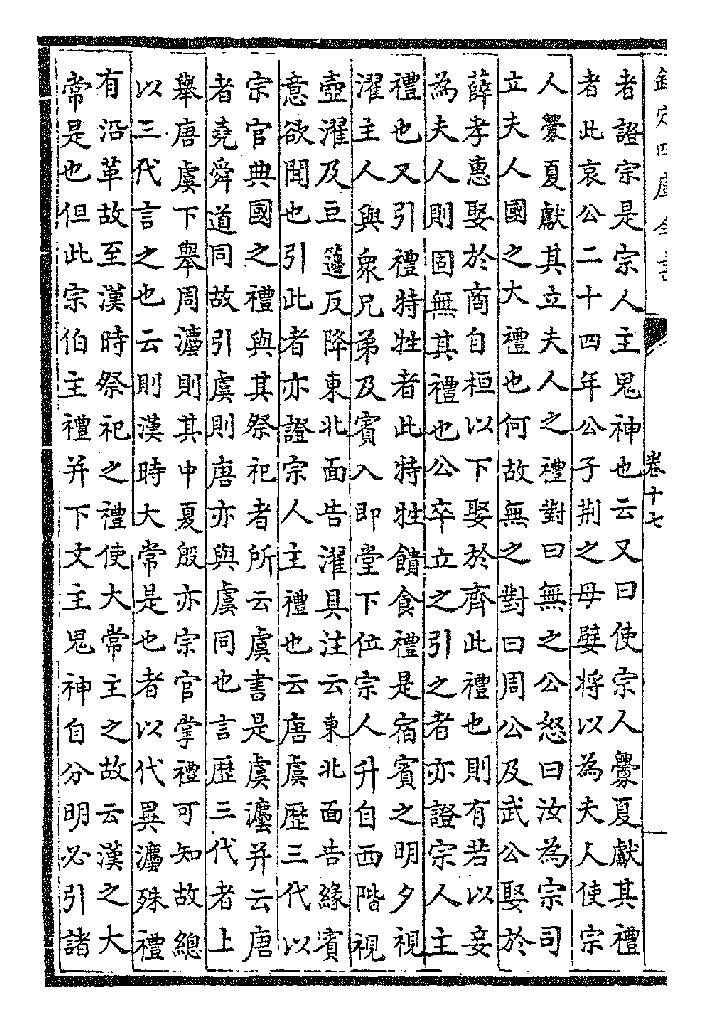 欽定四庫全書
卷十七
者證宗是宗人主鬼神也云又曰使宗人釁夏獻其禮
者此哀公二十四年公子荆之母嬖將以為夫人使宗
人釁夏獻其立夫人之禮對曰無之公怒曰汝為宗司
立夫人國之大禮也何故無之對曰周公及武公娶於
薛孝惠娶於商自桓以下娶於齊此禮也則有若以妾
為夫人則固無其禮也公卒立之引之者亦證宗人主
禮也又引禮特牲者此特牲饋食禮是宿賓之明夕視
濯主人與衆兄弟及賓入即堂下位宗人升自西階視
壺濯及豆籩反降東北面告濯具注云東北面告緣賓
意欲聞也引此者亦證宗人主禮也云唐虞歴三代以
宗官典國之禮與其祭祀者所云虞書是虞灋并云唐
者堯舜道同故引虞則唐亦與虞同也言歴三代者上
舉唐虞下舉周灋則其中夏殷亦宗官掌禮可知故總
以三代言之也云則漢時大常是也者以代異灋殊禮
有沿革故至漢時祭祀之禮使大常主之故云漢之大
常是也但此宗伯主禮并下文主鬼神自分明必引諸